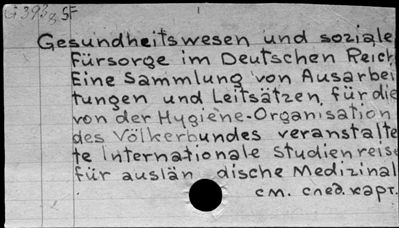 G 393/3 SF
Gesundheitswesen und soziale
Fürsorge im Deutschen Reich
Eine Sammlung von Ausarbei
tungen und Leitsätzen, für die
von der Hygiène-Organisation
des Völkerbundes veranstalte
te Internationale Studienreise
für auslän dische Medizinal
см. след. карт.